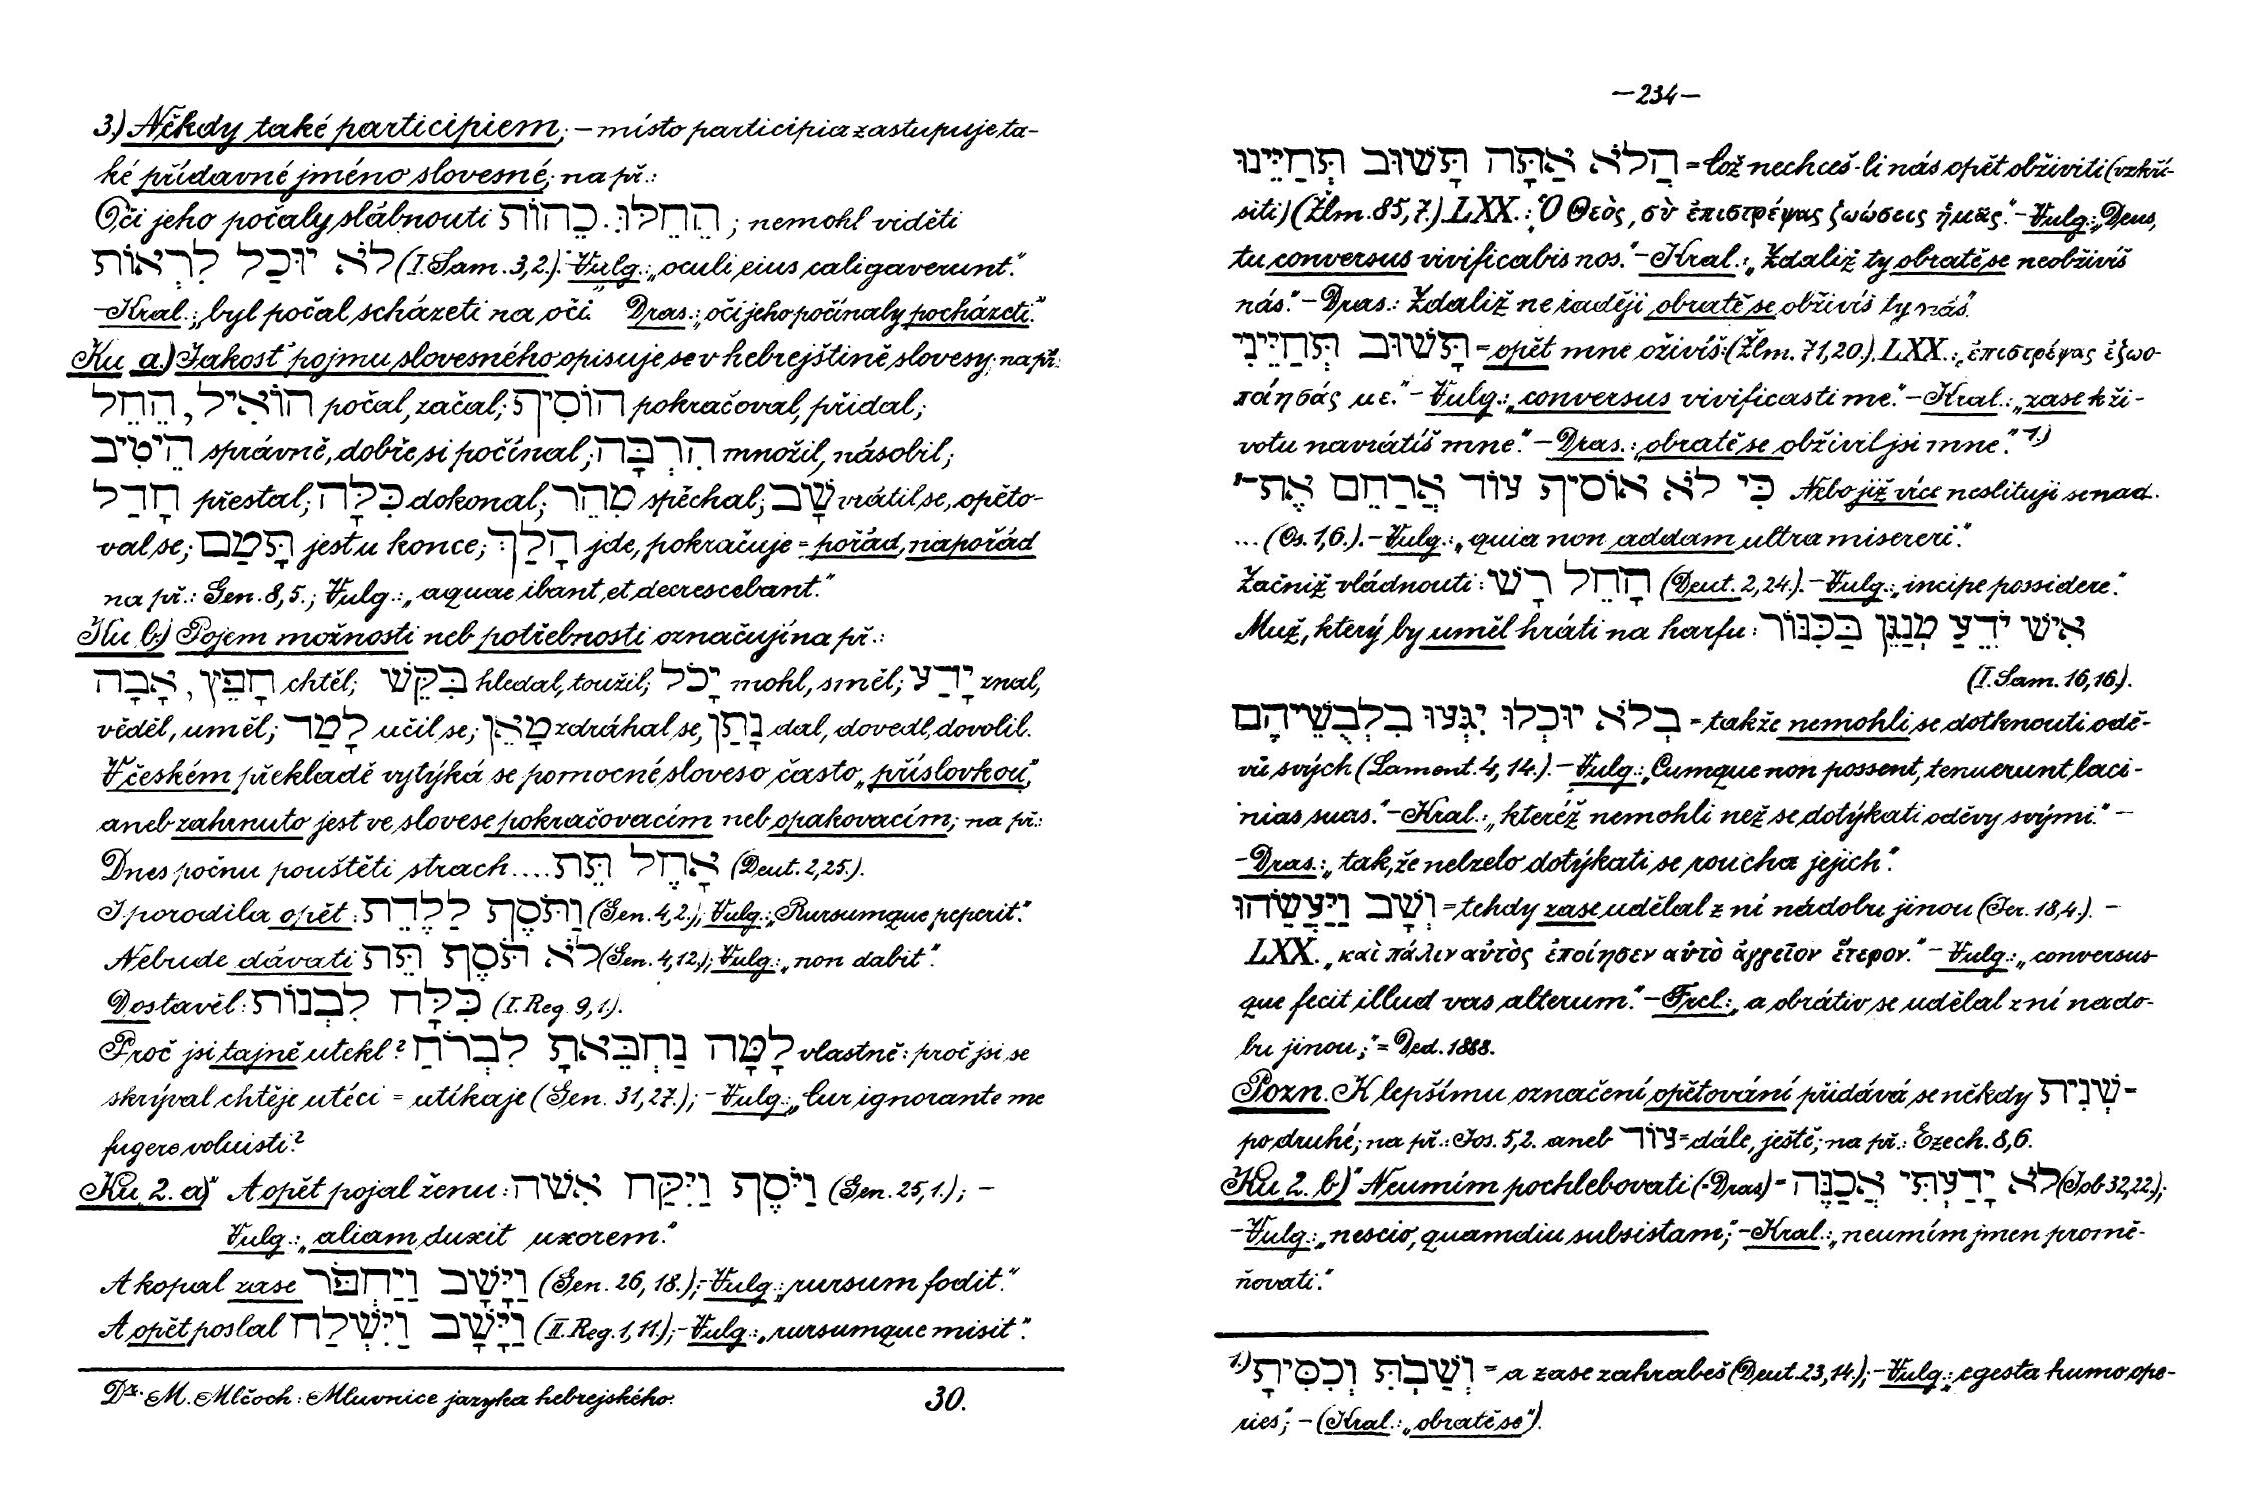 3.) Někdy také participiem; – místo participia zastupuje ta-
ké přídavné jméno slovesné; na př.:
Oči jeho počaly slábnouti הֵחֵלּוּ כֵהוֹת ; nemohl viděti
לֹא יוּכַל לִרְאוֹת (I. Sam. 3, 2.). Vulg.: „oculi eius caligaverunt."
– Kral.: „byl počal scházeti na oči. Dras.: „oči jeho počínaly pocházeti."
Ku a.) Jakosť pojmu slovesného opisuje se v hebrejštině slovesy; na př.:
הוֹאִיל, הֵחֵל počal, začal; הוֹסִיף pokračoval, přidal;
הֵיטִיב správně, dobře si počínal; הִרְבָּה množil, násobil;
חָדַל přestal; כִּלָּה dokonal; מִהֵר spěchal; שָׁב vrátil se, opěto-
val se; תָּמַם jest u konce; הָלַךְ jde, pokračuje = pořád, napořád
na př.: Gen. 8, 5.; Vulg.: „aquae ibant, et decrescebant."
Ku b.) Pojem možnosti neb potřebnosti označují na př.:
חָפֵץ, אָבָה chtěl; בִּקֵּשׁ hledal, toužil; יָכֹל mohl, směl; יָדַע znal,
věděl, uměl; לָמַד učil se; מָאֵן zdráhal se, נָתַן dal, dovedl, dovolil.
V českém překladě vytýká se pomocné sloveso často „příslovkou",
aneb zahrnuto jest ve slovese pokračovacím neb opakovacím; na př.:
Dnes počnu pouštěti strach .... אָחֵל תֵּת (Deut. 2, 25.).
I porodila opět: וַתֹּסֶף לָלֶדֶת (Gen. 4, 2.); Vulg.: „Rursumque peperit."
Nebude dávati לֹא תֹסֵף תֵּת (Gen. 4, 12.); Vulg.: „non dabit".
Dostavěl: כִּלָּה לִבְנוֹת (I. Reg. 9, 1.).
Proč jsi tajně utekl? לָמָּה נַחְבֵּאתָ לִבְרֹחַ vlastně: proč jsi se
skrýval chtěje utéci = utíkaje (Gen. 31, 27.); – Vulg.: „Cur ignorante me
fugere voluisti?
Ku 2. a)" A opět pojal ženu: וַיֹּסֶף וַיִּקַּח אִשָּׁה (Gen. 25, 1.); –
Vulg.: „aliam duxit uxorem."
A kopal zase וַיָּשָׁב וַיַחְפֹּר (Gen. 26, 18.); – Vulg.: „rursum fodit."
A opět poslal וַיָּשָׁב וַיִּשְׁלַח (II. Reg. 1, 11.); – Vulg.: „rursumque misit".
Dr. M. Mlčoch: Mluvnice jazyka hebrejského. 30.
– 234 –
הֲלֹא אַתָּה תָּשׁוּב תְּחַיֵּינוּ = Což nechceš-li nás opět obživiti (vzkří-
siti) (Žlm. 85, 7.). LXX.: „Ὁ Θεὸς, σὺ ἐπιστρέψας ζωώσεις ἡμᾶς." – Vulg.: „Deus,
tu conversus vivificabis nos." – Kral.: „Zdaliž ty obratě se neobživíš
nás". – Dras.: Zdaliž ne raději obratě se obživíš ty nás".
תָּשׁוּב תְּחַיֵּינִי = opět mne oživíš. (Žlm. 71, 20.). LXX.: „ἐπιστρέψας ἐζωο-
ποίησάς με." – Vulg.: „conversus vivificasti me". – Kral.: „zase k ži-
votu navrátíš mne". – Dras.: „obratě se obživil jsi mne". 1.)
כִּי לֹא אוֹסִיף עוֹד אֲרַחֵם אֶת־ Nebo již více neslituji se nad..
... (Os. 1, 6.). – Vulg.: „quia non addam ultra misereri".
Začniž vládnouti: הָחֵל רָשׁ (Deut. 2, 24.). – Vulg.: „incipe possidere".
Muž, který by uměl hráti na harfu: אִישׁ יֹדֵעַ מְנַגֵּן בַּכִּנּוֹר
(I. Sam. 16, 16.).
בְּלֹא יוּכְלוּ יִגְּעוּ בִּלְבֻשֵׁיהֶם = takže nemohli se dotknouti odě-
vů svých (Lament. 4, 14.). – Vulg.: „Cumque non possent, tenuerunt laci-
nias suas." – Kral.: „kteréž nemohli než se dotýkati oděvy svými." –
– Dras.: „tak, že nelzelo dotýkati se roucha jejich".
וְשָׁב וַיַּעֲשֵׂהוּ = tehdy zase udělal z ní nádobu jinou (Jer. 18, 4.). –
LXX. „καὶ πάλιν αὐτὸς ἐποίησεν αὐτὸ ἀγγεῖον ἕτερον." – Vulg.: „conversus-
que fecit illud vas alterum". – Frcl.: „a obrátiv se udělal z ní nádo-
bu jinou;" = Ded. 1888.
Pozn. K lepšímu označení opětování přidává se někdy שֵׁנִית =
po druhé; na př.: Jos. 5, 2. aneb עוֹד = dále, ještě; na př.: Ezech. 8, 6.
Ku 2. b)" Neumím pochlebovati (= Dras) = לֹא יָדַעְתִּי אֲכַנֶּה (Job 32, 22.);
– Vulg.: „nescio, quamdiu subsistam;" – Kral.: „neumím jmen promě-
ňovati."
1.) וְשַׁבְתָּ וְכִסִּיתָ = a zase zahrabeš (Deut. 23, 14.); – Vulg.: „egesta humo ope-
ries"; – (Kral.: „obratě se").